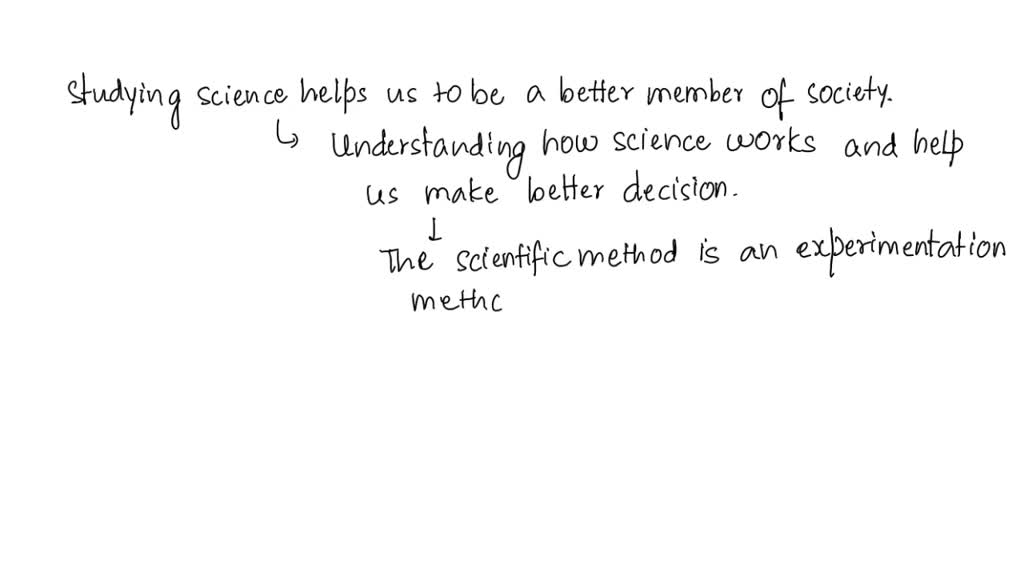 Studying science helps us to be a better member of society.
↳ Understanding how science works and help
us make better decision.
↓
The scientific method is an experimentation
methc